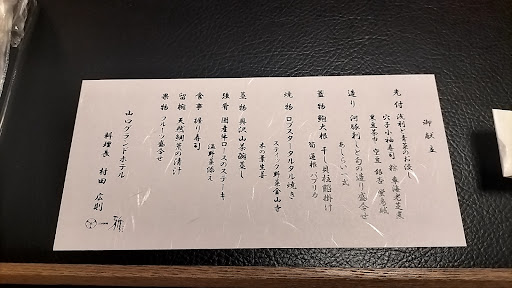 御献立
先付 浅利と青菜のお浸し
穴子小袖寿司 粽 車海老芝煮
黒豆茶巾 空豆 銀杏
造り 河豚刺しと旬の造り盛合せ
あしらい一式
蓋物 鮑大根 干し貝柱餡掛け
筍 蓮根 パプリカ
焼物 ロブスタータルタル焼き
スティック野菜金山寺
木の葉生姜
蒸物 奥沢山茶碗蒸し
強肴 国産牛ロースのステーキ
温野菜添え
食事 握り寿司
留椀 天然鯛葱の清汁
果物 フルーツ盛合せ
山ノグランドホテル
料理長 村田 広則